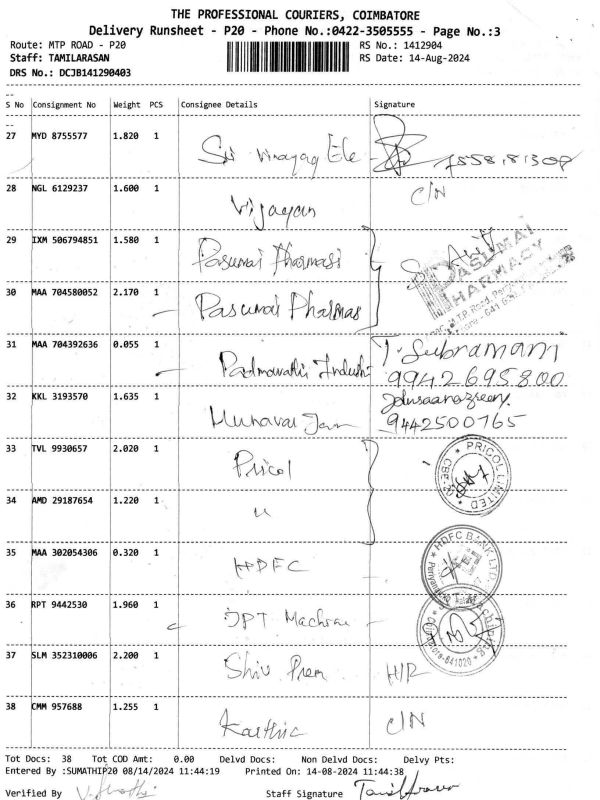 THE PROFESSIONAL COURIERS, COIMBATORE
Delivery Runsheet - P20 - Phone No.:0422-3505555 - Page No.:3
Route: MTP ROAD - P20 RS No.: 1412904
Staff: TAMILARASAN RS Date: 14-Aug-2024
DRS No.: DCJB141290403
S No Consignment No Weight PCS Consignee Details Signature
27 MYD 8755577 1.820 1 Sri Vinayag Ele
28 NGL 6129237 1.600 1 Vijayan C/N
29 IXM 506794851 1.580 1 Pasumai Pharmasi
PASUMAI PHARMACY
30 MAA 704580052 2.170 1 Pasumai Pharmas
31 MAA 704392636 0.055 1 Padmavathi Industri T. Subramani
9942695800
32 KKL 3193570 1.635 1 Munavar Jan
9442500765
33 TVL 9930657 2.020 1 Pricol PRICOL LIMITED
34 AMD 29187654 1.220 1 u
35 MAA 302054306 0.320 1 HDFC HDFC BANK LTD.
36 RPT 9442530 1.960 1 JPT Coimbatore-641020
37 SLM 352310006 2.200 1 Shiv Prem H/R
38 CMM 957688 1.255 1 Karthic C/N
Tot Docs: 38 Tot COD Amt: 0.00 Delvd Docs: Non Delvd Docs: Delvy Pts:
Entered By :SUMATHIP20 08/14/2024 11:44:19 Printed On: 14-08-2024 11:44:38
Verified By Staff Signature